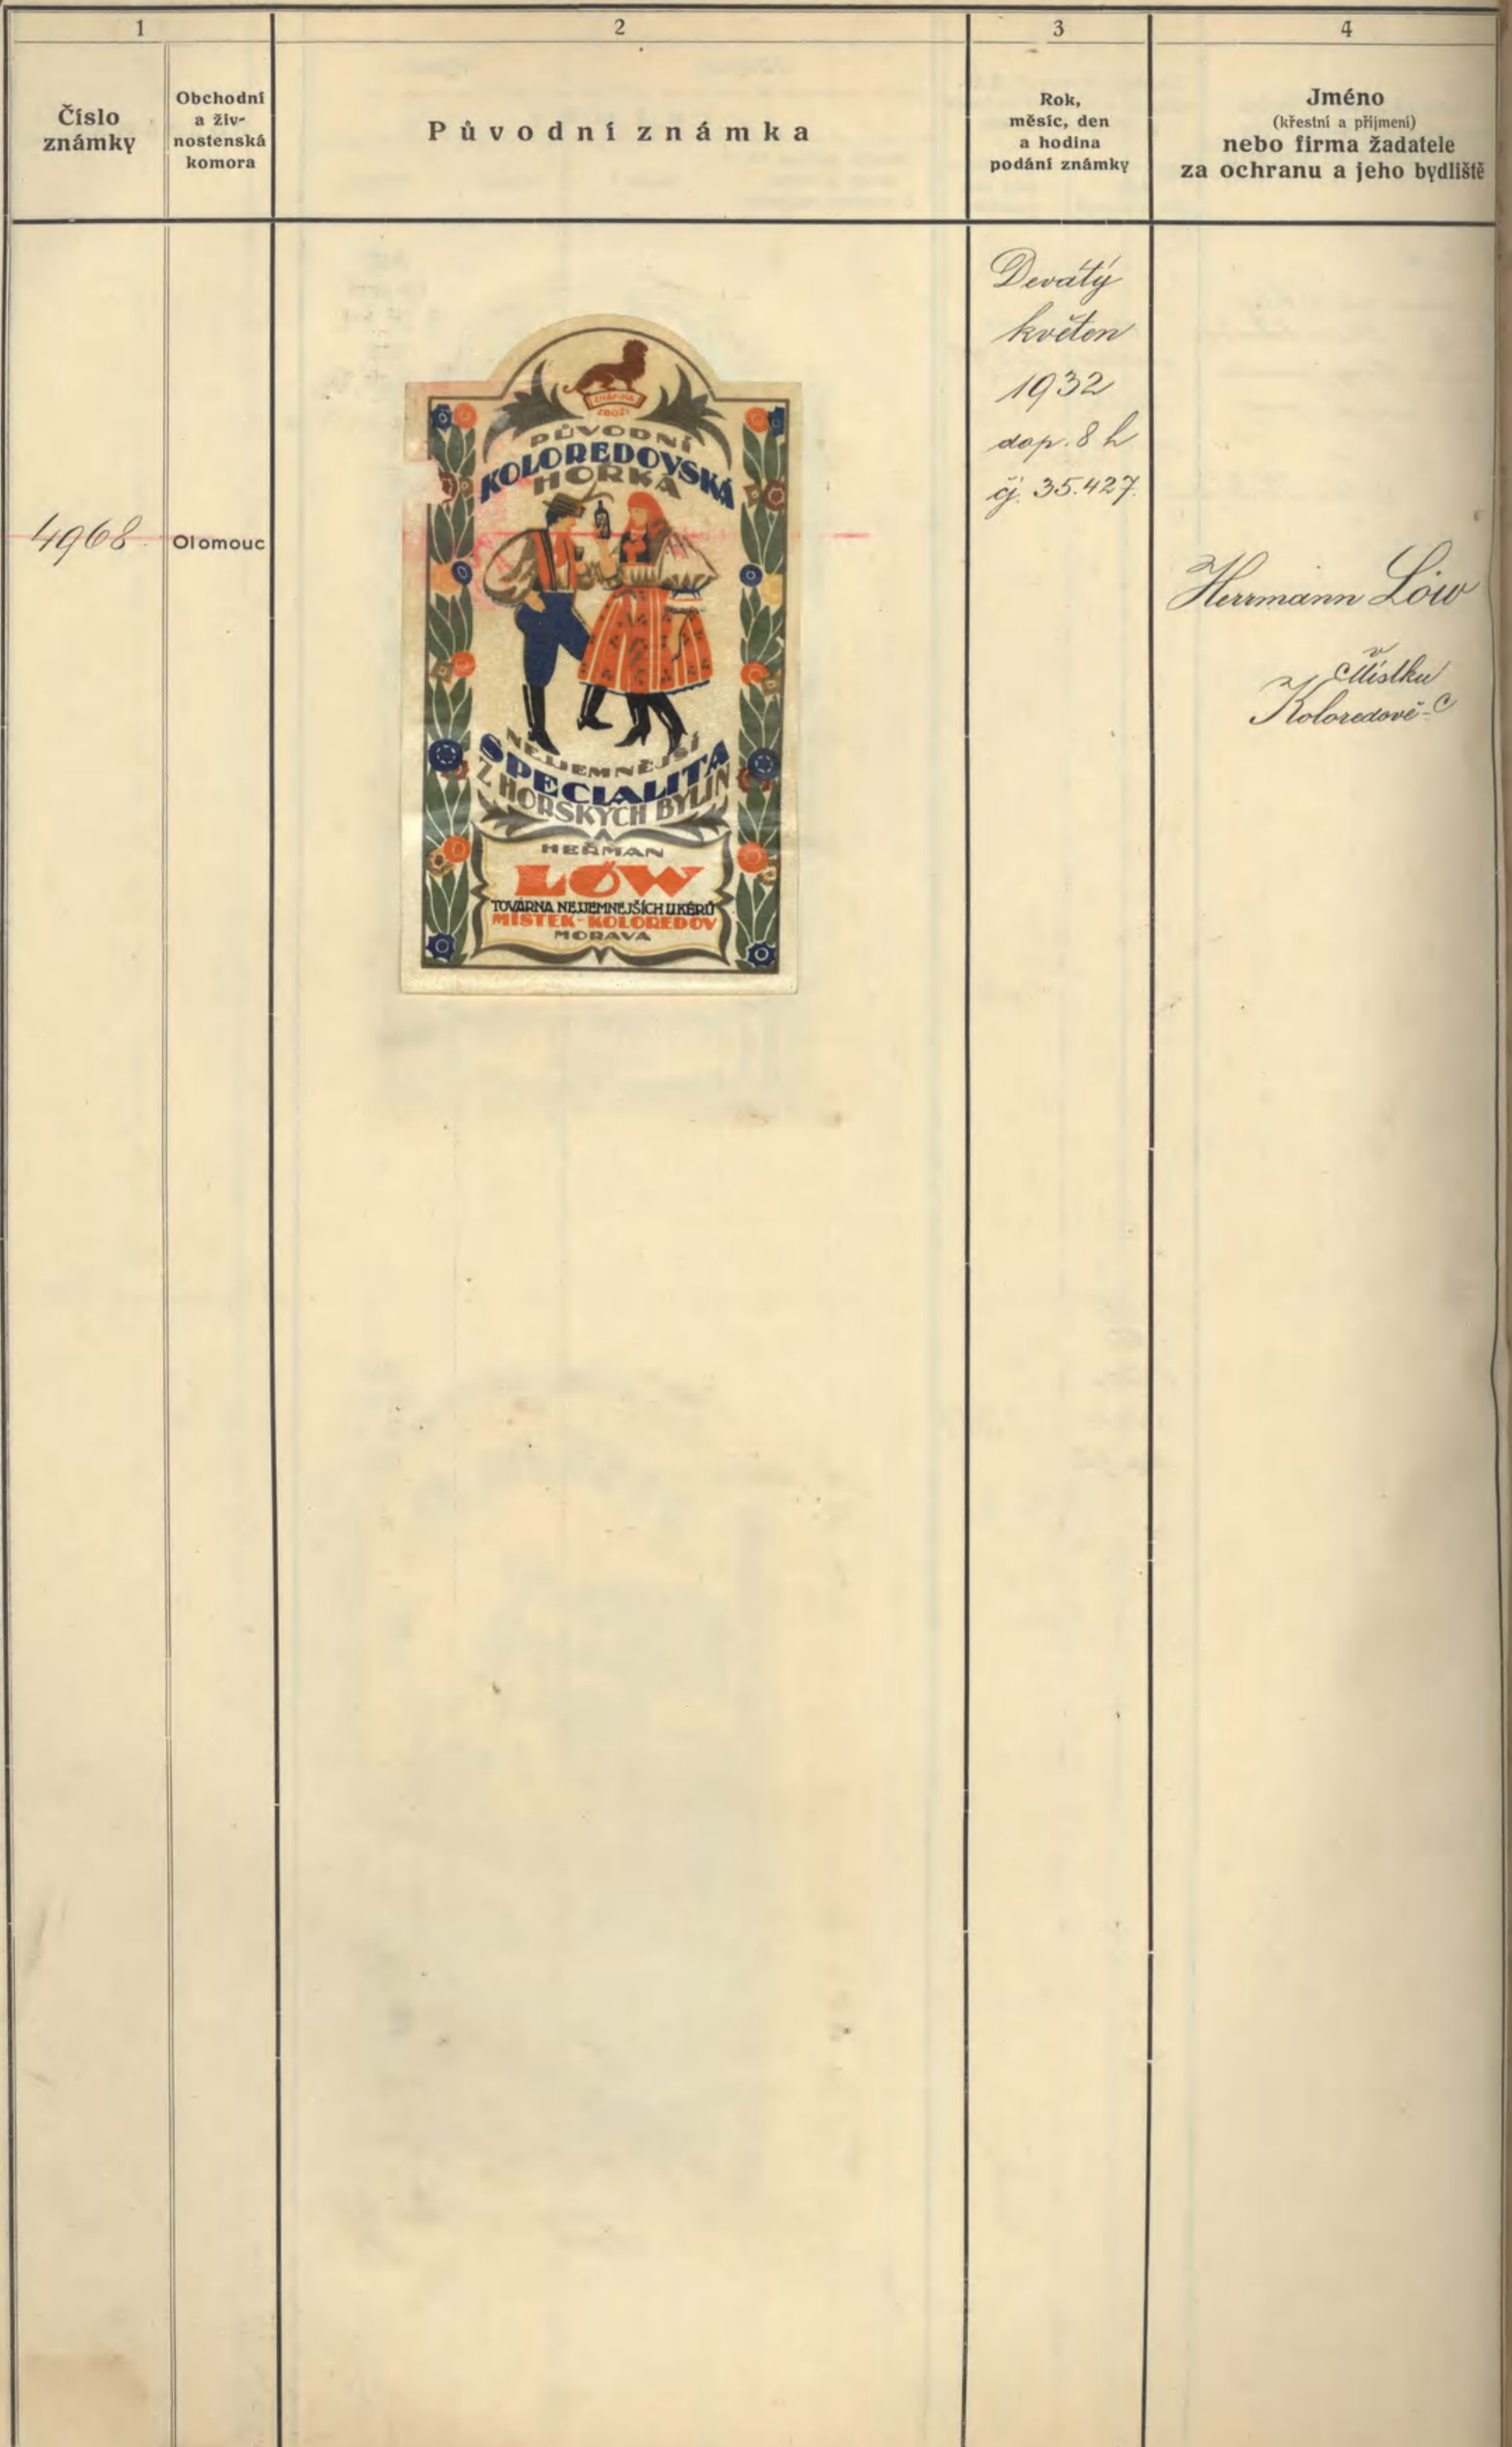 1
2
3
4
Číslo
známky
Obchodní
a živ-
nostenská
komora
Původní známka
Rok,
měsíc, den
a hodina
podání známky
Jméno
(křestní a příjmení)
nebo firma žadatele
za ochranu a jeho bydliště
4968.
Olomouc
ZNÁMKA
ZBOŽÍ
PŮVODNÍ
KOLOREDOVSKÁ
HORKÁ
NEJJEMNĚJŠÍ
SPECIALITA
Z HORSKÝCH BYLIN
HEŘMAN
LÖW
TOVÁRNA NEJJEMNEJŠÍCH LIKÉRŮ
MÍSTEK-KOLOREDOV
MORAVA
Devátý
květen
1932
dop. 8 h
čj. 35.427.
Herrmann Löw
v
Místku
Koloredově-